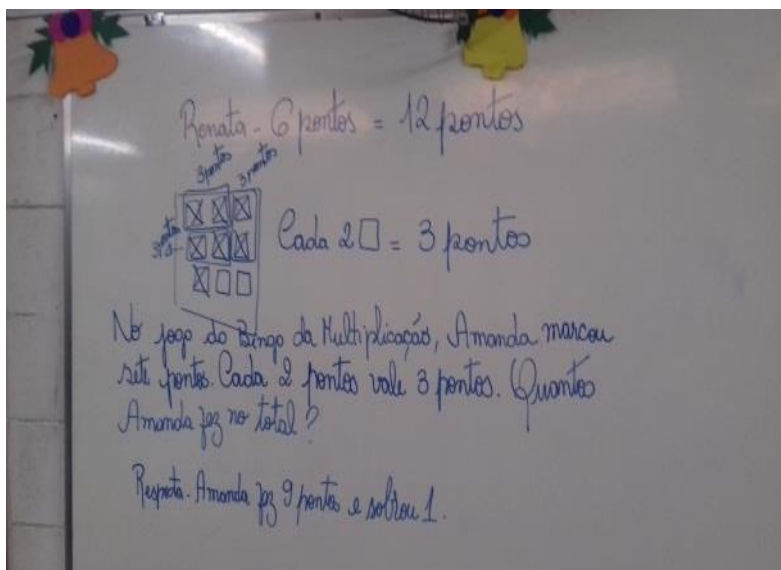 Renata - 6 pontos = 12 pontos
3 pontos 3 pontos
3 pontos
Cada 2 □ = 3 pontos
No jogo do Bingo da Multiplicação, Amanda marcou
sete pontos. Cada 2 pontos vale 3 pontos. Quantos
Amanda fez no total?
Resposta. Amanda fez 9 pontos e sobrou 1.